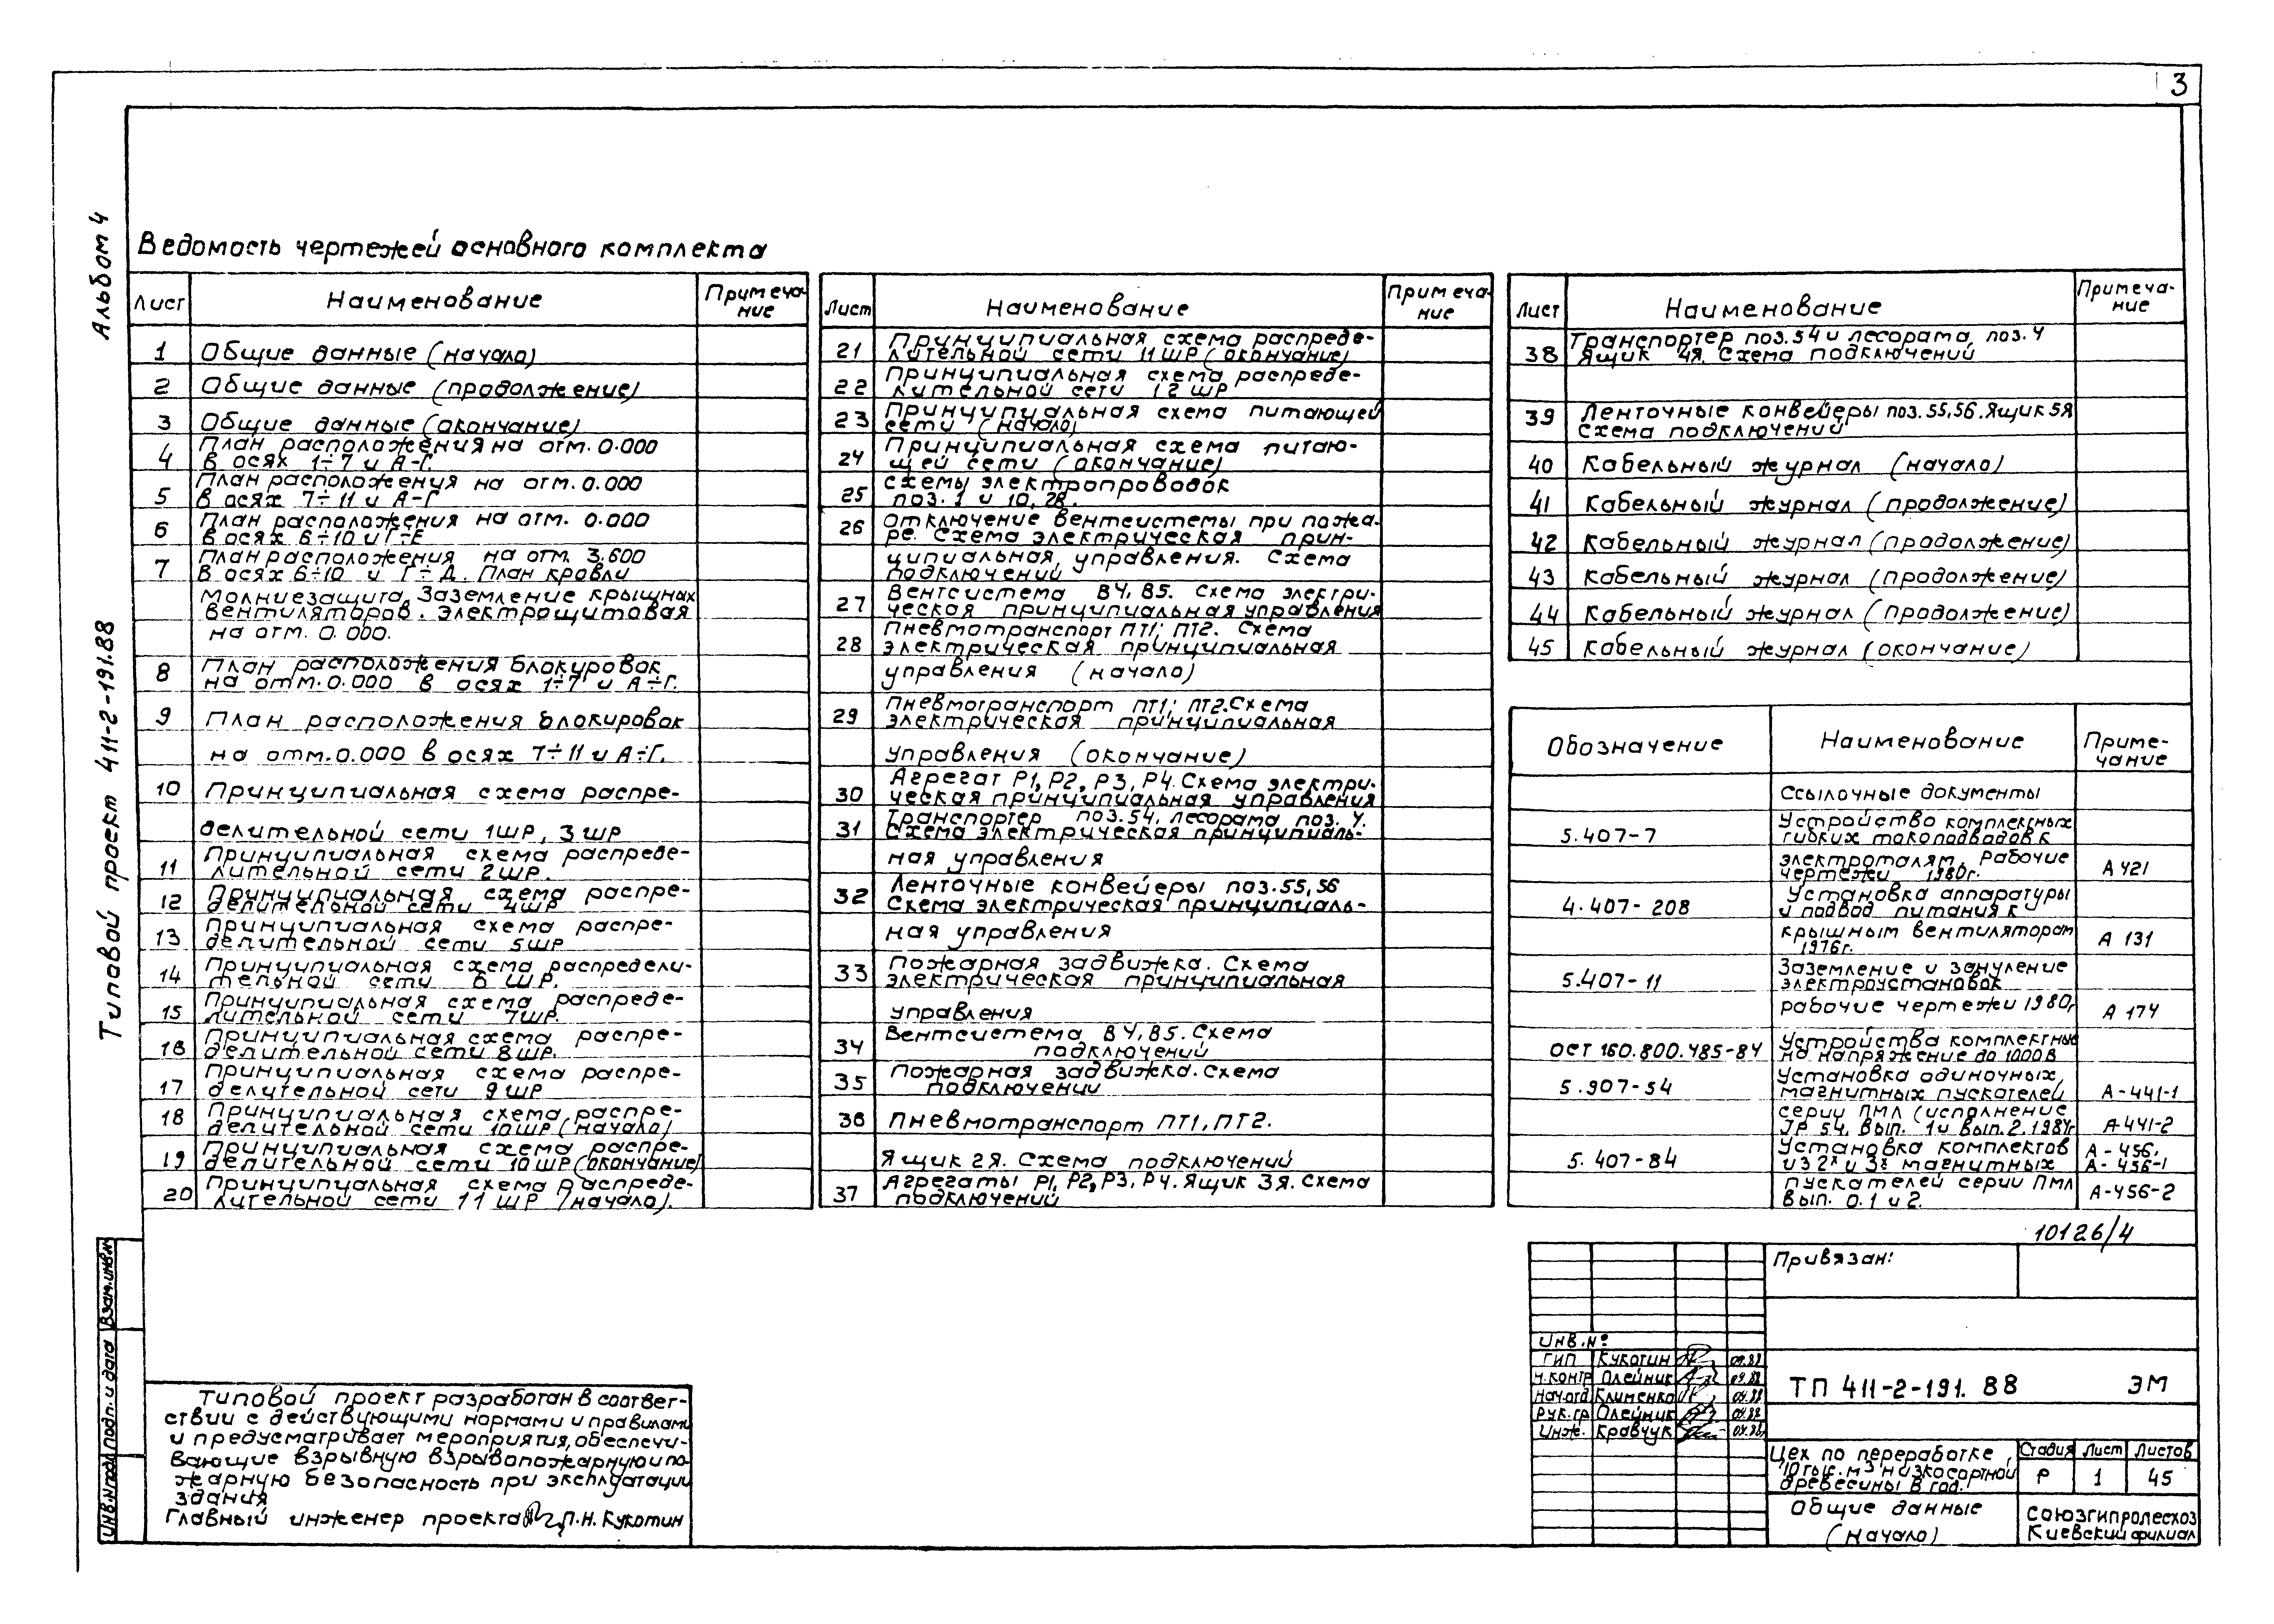 3
Альбом 4
Типовой проект 411-2-191.88
Ведомость чертежей основного комплекта
Лист Наименование Примеча-
ние
1 Общие данные (начало)
2 Общие данные (продолжение)
3 Общие данные (окончание)
План расположения на отм. 0.000
4 в осях 1÷7 и А-Г.
План расположения на отм. 0.000
5 в осях 7÷11 и А-Г
План расположения на отм. 0.000
6 в осях 6÷10 и Г÷Е
План расположения на отм. 3.600
7 в осях 6÷10 и Г÷Д. План кровли
Молниезащита. Заземление крышных
вентиляторов. Электрощитовая
на отм. 0.000.
План расположения блокировок
8 на отм. 0.000 в осях 1÷7 и А÷Г.
9 План расположения блокировок
на отм. 0.000 в осях 7÷11 и А÷Г.
10 Принципиальная схема распре-
делительной сети 1ШР, 3ШР
Принципиальная схема распреде-
11 лительной сети 2ШР.
Принципиальная схема распре-
12 делительной сети 4ШР
Принципиальная схема распре-
13 делительной сети 5ШР
Принципиальная схема распредели-
14 тельной сети 6 ШР.
Принципиальная схема распреде-
15 лительной сети 7ШР.
Принципиальная схема распре-
16 делительной сети 8ШР.
Принципиальная схема распре-
17 делительной сети 9ШР
Принципиальная схема распре-
18 делительной сети 10ШР (начало)
Принципиальная схема распре-
19 делительной сети 10ШР (окончание)
Принципиальная схема распреде-
20 лительной сети 11 ШР (начало).
Лист Наименование Примеча-
ние
Принципиальная схема распреде-
21 лительной сети 11ШР (окончание)
Принципиальная схема распреде-
22 лительной сети 12 ШР
Принципиальная схема питающей
23 сети (начало)
Принципиальная схема питаю-
24 щей сети (окончание)
Схемы электропроводок
25 поз. 1 и 10, 28.
Отключение вентсистемы при пожа-
26 ре. Схема электрическая прин-
ципиальная управления. Схема
подключений
Вентсистема В4, В5. Схема электри-
27 ческая принципиальная управления
Пневмотранспорт ПТ1; ПТ2. Схема
28 электрическая принципиальная
управления (начало)
Пневмотранспорт ПТ1; ПТ2. Схема
29 электрическая принципиальная
управления (окончание)
Агрегат Р1, Р2, Р3, Р4. Схема электри-
30 ческая принципиальная управления
Транспортер поз. 54, лесорама поз. 4.
31 Схема электрическая принципиаль-
ная управления
Ленточные конвейеры поз. 55, 56
32 Схема электрическая принципиаль-
ная управления
Пожарная задвижка. Схема
33 электрическая принципиальная
управления
Вентсистема В4, В5. Схема
34 подключений
Пожарная задвижка. Схема
35 подключений
36 Пневмотранспорт ПТ1, ПТ2.
Ящик 2Я. Схема подключений
Агрегаты Р1, Р2, Р3, Р4. Ящик 3Я. Схема
37 подключений
Лист Наименование Примеча-
ние
Транспортер поз. 54 и лесорама поз. 4
38 Ящик 4Я. Схема подключений
39 Ленточные конвейеры поз. 55, 56. Ящик 5Я
Схема подключений
40 Кабельный журнал (начало)
41 Кабельный журнал (продолжение)
42 Кабельный журнал (продолжение)
43 Кабельный журнал (продолжение)
44 Кабельный журнал (продолжение)
45 Кабельный журнал (окончание)
Обозначение Наименование Приме-
чание
Ссылочные документы
Устройство комплектных
5.407-7 гибких токоподводов к
электроталям. Рабочие
чертежи 1980г. А 421
Установка аппаратуры
4.407-208 и подвод питания к
крышным вентиляторам
1976г. А 131
Заземление и зануление
5.407-11 электроустановок
рабочие чертежи 1980г А 174
Устройства комплектные
ОСТ 160.800.485-84 на напряжение до 1000В
Установка одиночных
5.907-54 магнитных пускателей А-441-1
серии ПМЛ (исполнение
JP 54. вып. 1 и вып. 2. 1984г А-441-2
Установка комплектов А-456,
5.407-84 из 2х и 3х магнитных А-456-1
пускателей серии ПМЛ
вып. 0.1 и 2. А-456-2
10126/4
Привязан:
Инв. №
ГИП Кукотин 09.88
Н.контр Олейник 09.88
Нач.отд Клименко 09.88
Рук.гр. Олейник 09.88
Инж. Кравчук 09.88
ТП 411-2-191.88 ЭМ
Цех по переработке
10 тыс. м³ низкосортной
древесины в год.
Стадия Лист Листов
Р 1 45
Общие данные
(начало)
СОЮЗГИПРОЛЕСХОЗ
Киевский филиал
Типовой проект разработан в соответ-
ствии с действующими нормами и правилами
и предусматривает мероприятия, обеспечи-
вающие взрывную взрывопожарную и по-
жарную безопасность при эксплуатации
здания
Главный инженер проекта П.Н. Кукотин
Взам. инв. №
Подп. и дата
Инв. № подл.